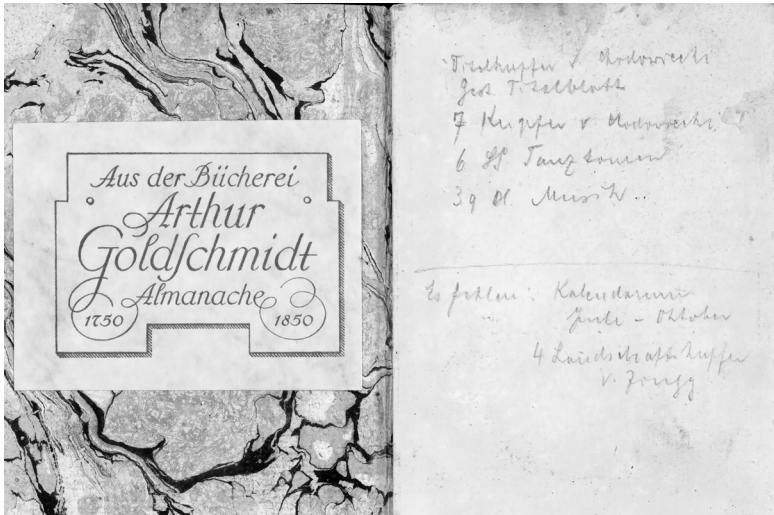 Aus der Bücherei
Arthur
Goldſchmidt
Almanache
1750
1850
Titelkupfer v. Chodowiecki
Gest. Titelblatt
7 Kupfer v Chodowiecki
6 SS Tanztouren
3 g Bl. Musik..
Es fehlen: Kalendarium
Juli - Oktober
4 Landschaftskupfer
v.